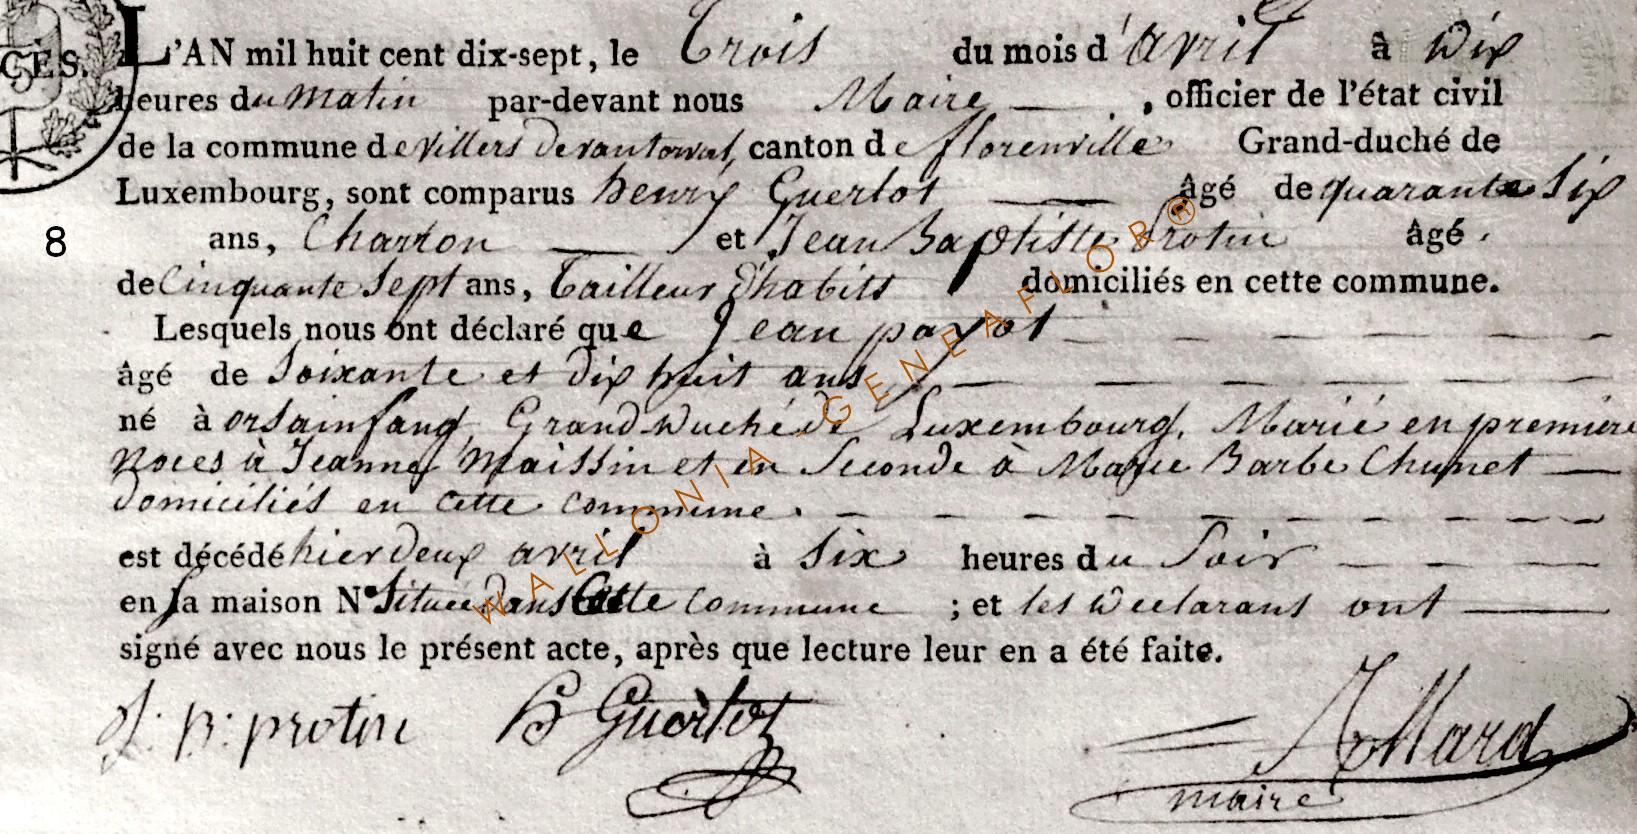 CÈS.
L'AN mil huit cent dix-sept, le Trois du mois d'avril à Dix
heures du Matin par-devant nous Maire, officier de l'état civil
de la commune de villers devant orval, canton de florenville Grand-duché de
Luxembourg, sont comparus henry Guerlot âgé de quarante Six
8 ans, Charron et Jean Baptiste Protin âgé
de Cinquante Sept ans, Tailleur d'habits domiciliés en cette commune.
Lesquels nous ont déclaré que Jean payot
âgé de Soixante et dix huit ans
né à orsainfang, Grand Duché de Luxembourg, Marié en premiere
Noces à Jeanne Maissin et en Seconde à Marie Barbe Chunet
domiciliés en cette commune.
est décédé hier deux avril à Six heures du Soir
en sa maison N° Située dans Cette Commune ; et les Declarans ont
signé avec nous le présent acte, après que lecture leur en a été faite.
J: B: protin H Guerlot Allard
maire
WALLONIA-GENEAFLOR®